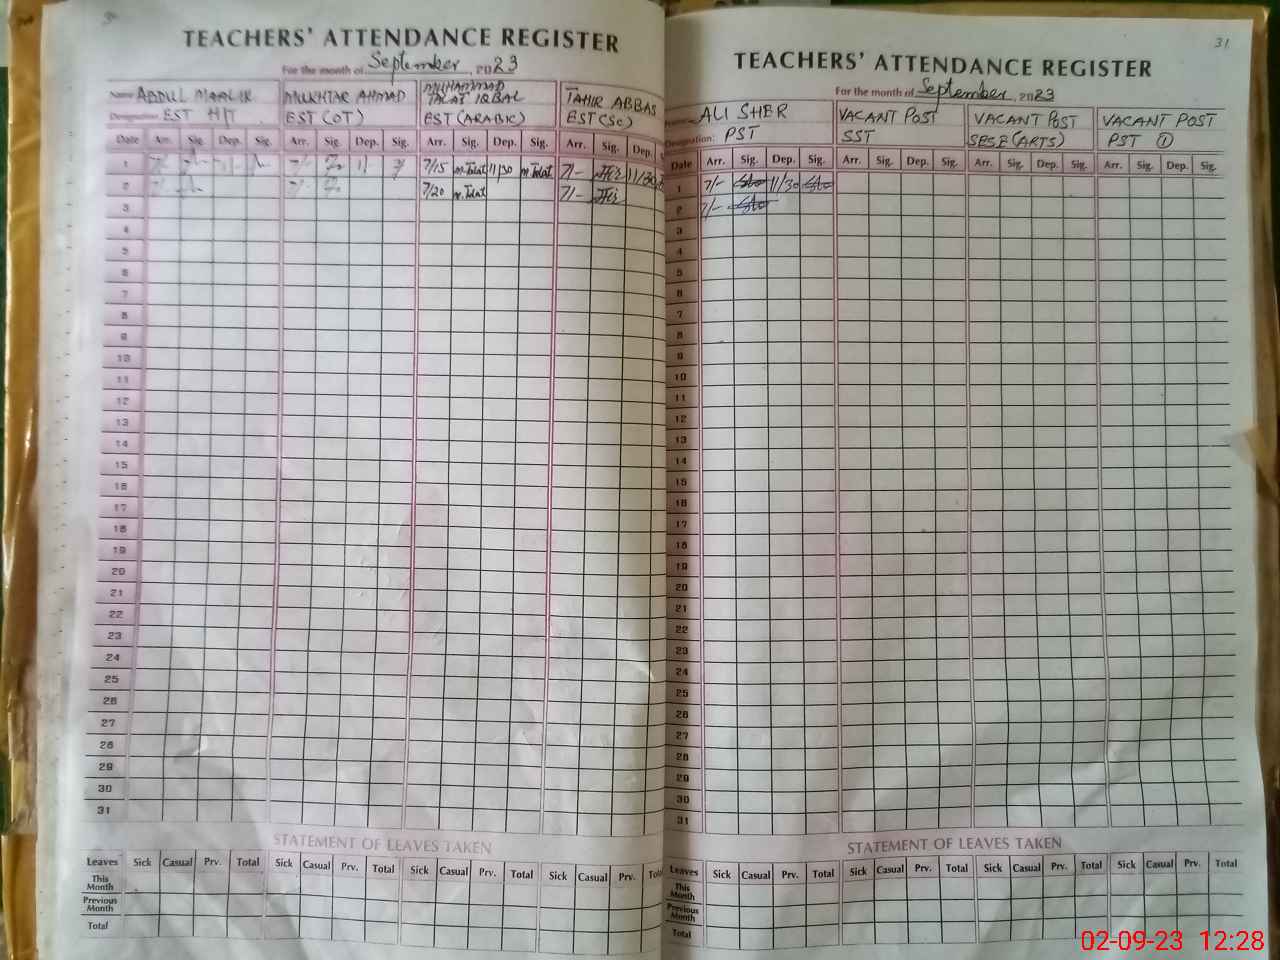 TEACHERS' ATTENDANCE REGISTER
For the month of September, 2023
Name ABDUL MAALIK MUKHTAR AHMAD MUHAMMAD TALAT IQBAL TAHIR ABBAS
Designation EST H/T EST (OT) EST (ARABIC) EST (SC)
Date Arr. Sig. Dep. Sig. Arr. Sig. Dep. Sig. Arr. Sig. Dep. Sig. Arr. Sig. Dep.
1 7/- 7/- 11/ 7/15 m.Talat 11/30 m.Talat 7/- 11/30
2 7/- 7/- 7/20 m.Talat 7/-
3
4
5
6
7
8
9
10
11
12
13
14
15
16
17
18
19
20
21
22
23
24
25
26
27
28
29
30
31
STATEMENT OF LEAVES TAKEN
Leaves Sick Casual Prv. Total Sick Casual Prv. Total Sick Casual Prv. Total Sick Casual Prv.
This Month
Previous Month
Total
31
TEACHERS' ATTENDANCE REGISTER
For the month of September, 2023
ALI SHER VACANT POST VACANT POST VACANT POST
Designation: PST SST SESE (ARTS) PST ①
Date Arr. Sig. Dep. Sig. Arr. Sig. Dep. Sig. Arr. Sig. Dep. Sig. Arr. Sig. Dep. Sig.
1 7/- 11/30
2 7/-
3
4
5
6
7
8
9
10
11
12
13
14
15
16
17
18
19
20
21
22
23
24
25
26
27
28
29
30
31
STATEMENT OF LEAVES TAKEN
Leaves Sick Casual Prv. Total Sick Casual Prv. Total Sick Casual Prv. Total Sick Casual Prv. Total
This Month
Previous Month
Total
02-09-23 12:28